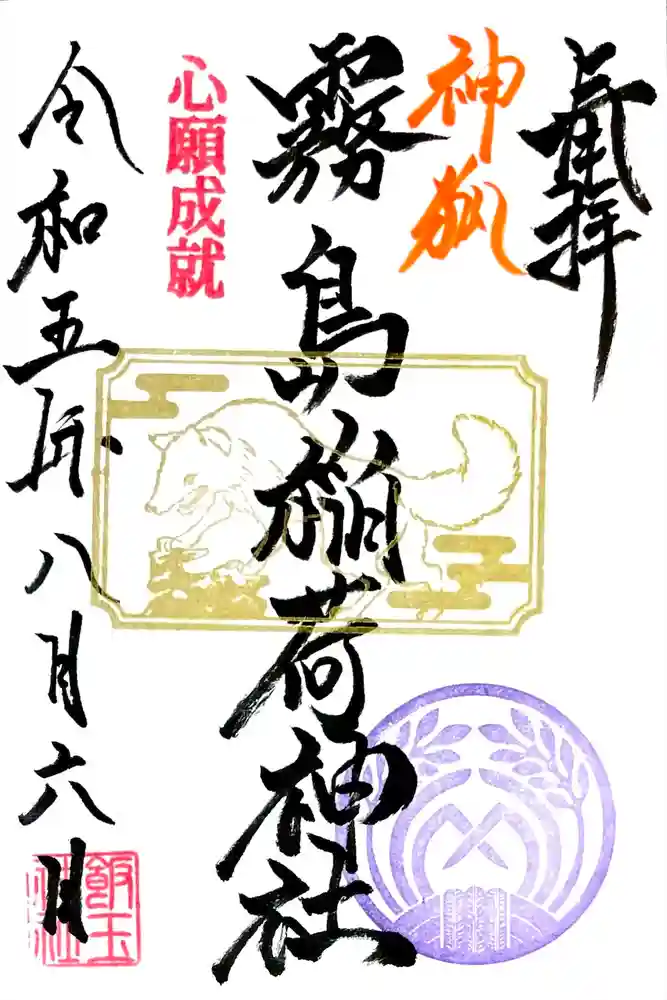 奉拝
神狐
霧島稲荷神社
心願成就
令和五年八月六日
飯玉神社